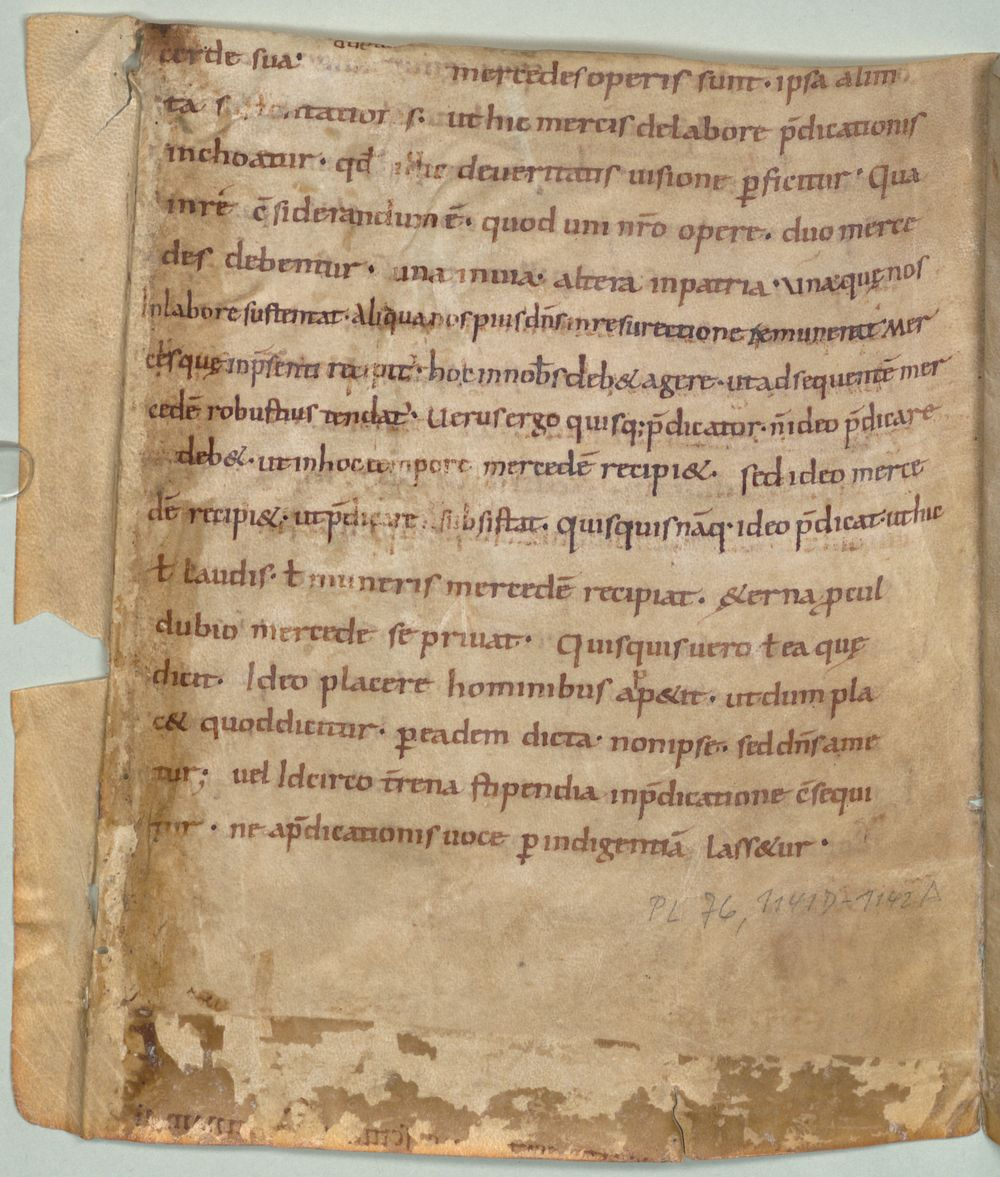 cerde sua· mercedes operis sunt· ipsa alim
ta s tentatio s· ut hic mercis delabore p̄dicationis
inchoatur· qđ illic deveritatis visione ꝑficitur· Qua
inrē c̄siderandum ē· quod uni nr̄o opere· duo merce
des debentur· una invia· altera inpatria· Una quę nos
In labore sustentat· Aliqua nos pius dn̄s in resurectione remunerat Mer
ces quę inp̄senti recipit᷑· hoc innob̄s deb& agere· ut ad sequentē mer
cedē robustius tendat᷑· Verus ergo quisq; p̄dicator· n̄ ideo p̄dicare
deb&· ut in hoc tempore mercedē recipi&· sed ideo merce
dē recipi&· ut p̄dicare subsistat· quisquis nāq· ideo p̄dicat· ut hic
ł laudis· ł muneris mercedē recipiat· &erna ꝓcul
dubio mercede se privat· Quisquis vero ł ea quę
dicit· Ideo placere hominibus ap&it· ut dum pla
c& quod dicitur· ꝑ eadem dicta· non ipse· sed dn̄s ame
tur; vel Idcirco t̄rena stipendia inp̄dicatione c̄sequi
tur· ne ap̄dicationis voce ꝑ indigentiā lass&ur·
PL 76, 1141D-1142A